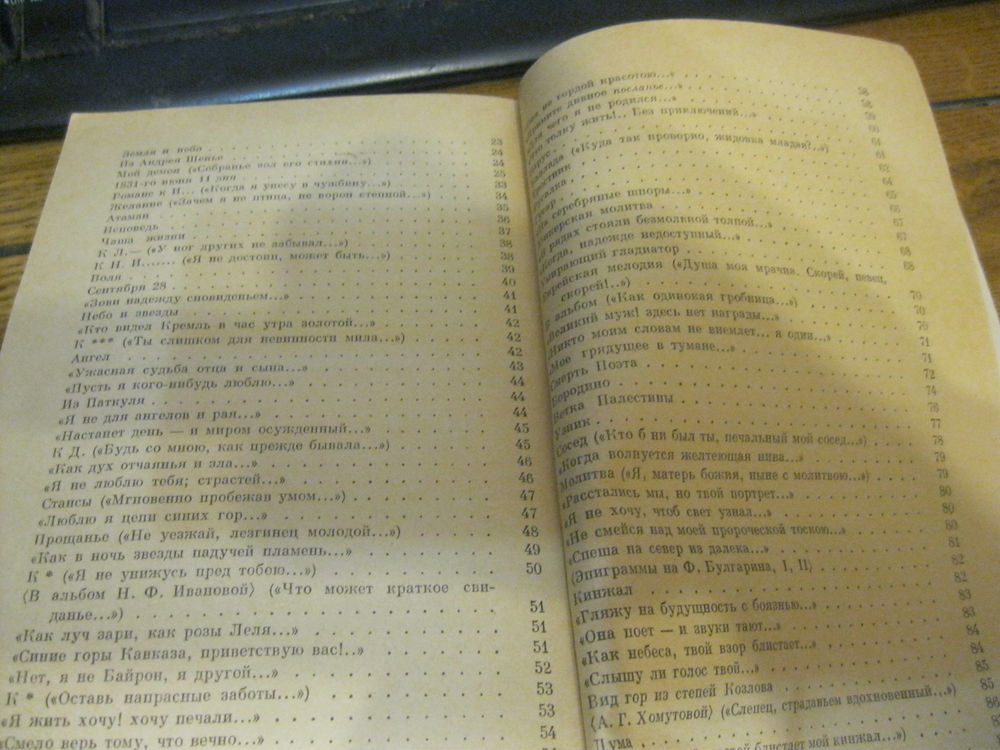 Земля и небо 23
Из Андрея Шенье 24
Мой демон («Собранье зол его стихия...») 24
1831-го июня 11 дня 25
Романс к И... («Когда я унесу в чужбину...») 33
Желание («Зачем я не птица, не ворон степной...») 34
Атаман 35
Исповедь 36
Чаша жизни 37
К Л.— («У ног других не забывал...») 38
К Н. И....... («Я не достоин, может быть...») 38
Воля 39
Сентября 28 40
«Зови надежду сновиденьем...» 41
Небо и звезды 41
«Кто видел Кремль в час утра золотой...» 42
К *** («Ты слишком для невинности мила...») 42
Ангел 42
«Ужасная судьба отца и сына...» 43
«Пусть я кого-нибудь люблю...» 44
Из Паткуля 44
«Я не для ангелов и рая...» 44
«Настанет день — и миром осужденный...» 45
К Д. («Будь со мною, как прежде бывала...») 45
«Как дух отчаянья и зла...» 46
«Я не люблю тебя; страстей...» 46
Стансы («Мгновенно пробежав умом...») 47
«Люблю я цепи синих гор...» 47
Прощанье («Не уезжай, лезгинец молодой...») 48
«Как в ночь звезды падучей пламень...» 49
К * («Я не унижусь пред тобою...») 50
(В альбом Н. Ф. Ивановой) («Что может краткое сви-
данье...») 51
«Как луч зари, как розы Леля...» 51
«Синие горы Кавказа, приветствую вас!..» 51
«Нет, я не Байрон, я другой...» 52
К * («Оставь напрасные заботы...») 53
«Я жить хочу! хочу печали...» 53
«Смело верь тому, что вечно...» 54
не гордой красотою...» 58
дивное посланье...» 58
чего я не родился...» 59
толку жить!.. Без приключений...» 60
61
(«Куда так проворно, жидовка младая?..») 61
62
64
65
серебряные шпоры...» 66
молитва 67
рядах стояли безмолвной толпой...» 67
надежде недоступный...» 68
Умирающий гладиатор 68
Еврейская мелодия («Душа моя мрачна. Скорей, певец,
скорей!..») 70
альбом («Как одинокая гробница...») 70
«Великий муж! здесь нет награды...» 70
«Никто моим словам не внемлет... я один...» 71
«Мое грядущее в тумане...» 71
Смерть Поэта 72
Бородино 74
Ветка Палестины 76
Узник 77
Сосед («Кто б ни был ты, печальный мой сосед...») 78
«Когда волнуется желтеющая нива...» 79
Молитва («Я, матерь божия, ныне с молитвою...») 79
«Расстались мы, но твой портрет...» 80
«Я не хочу, чтоб свет узнал...» 80
«Не смейся над моей пророческой тоскою...» 80
«Спеша на север из далека...» 81
(Эпиграммы на Ф. Булгарина, I, II) 82
Кинжал 82
«Гляжу на будущность с боязнью...» 83
«Она поет — и звуки тают...» 83
«Как небеса, твой взор блистает...» 84
«Слышу ли голос твой...» 84
Вид гор из степей Козлова 85
(А. Г. Хомутовой) («Слепец, страданьем вдохновенный...»)
Дума
блистает мой кинжал...»)